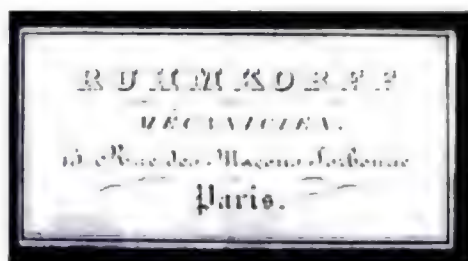 RUHMKORFF
MÉCANICIEN,
Rue des Maçons-Sorbonne
Paris.